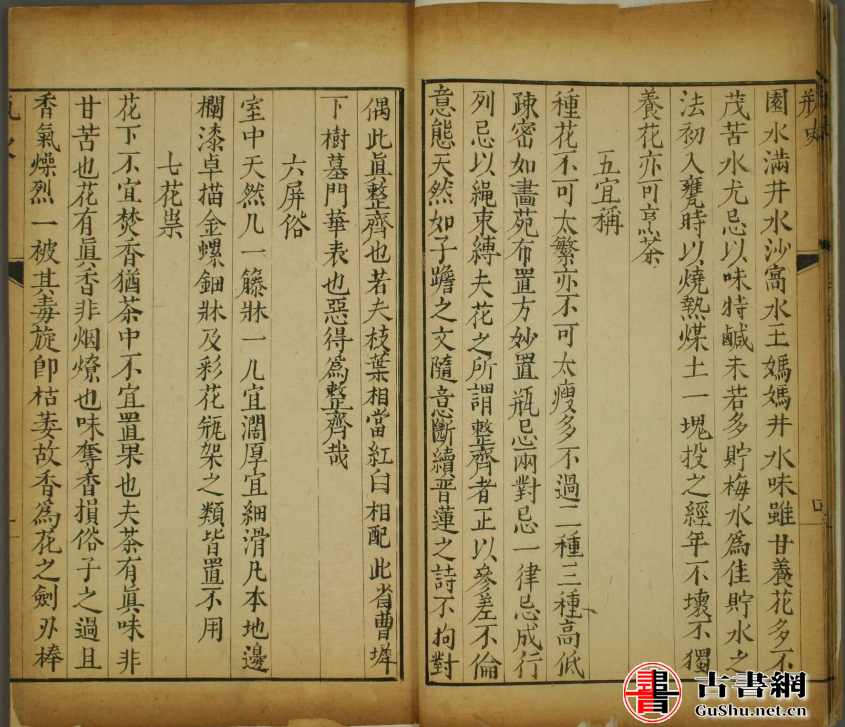 瓶史
園水滿井水沙窩水王媽媽井水味雖甘養花多不
茂苦水尤忌以味特鹹未若多貯梅水爲佳貯水之
法初入甕時以燒熱煤土一塊投之經年不壞不獨
養花亦可烹茶
五宜稱
種花不可太繁亦不可太瘦多不過二種三種高低
疎密如畫苑布置方妙置瓶忌兩對忌一律忌成行
列忌以繩束縛夫花之所謂整齊者正以參差不倫
意態天然如子瞻之文隨意斷續青蓮之詩不拘對
偶此眞整齊也若夫枝葉相當紅白相配此省曹墀
下樹墓門華表也惡得爲整齊哉
六屏俗
室中天然几一籐牀一几宜濶厚宜細滑凡本地邊
欄漆卓描金螺鈿牀及彩花瓶架之類皆置不用
七花祟
花下不宜焚香猶茶中不宜置果也夫茶有眞味非
甘苦也花有眞香非烟燎也味奪香損俗子之過且
香氣燥烈一被其毒旋卽枯萎故香爲花之劍刃棒
瓶史
古書網
GuShu.net.cn